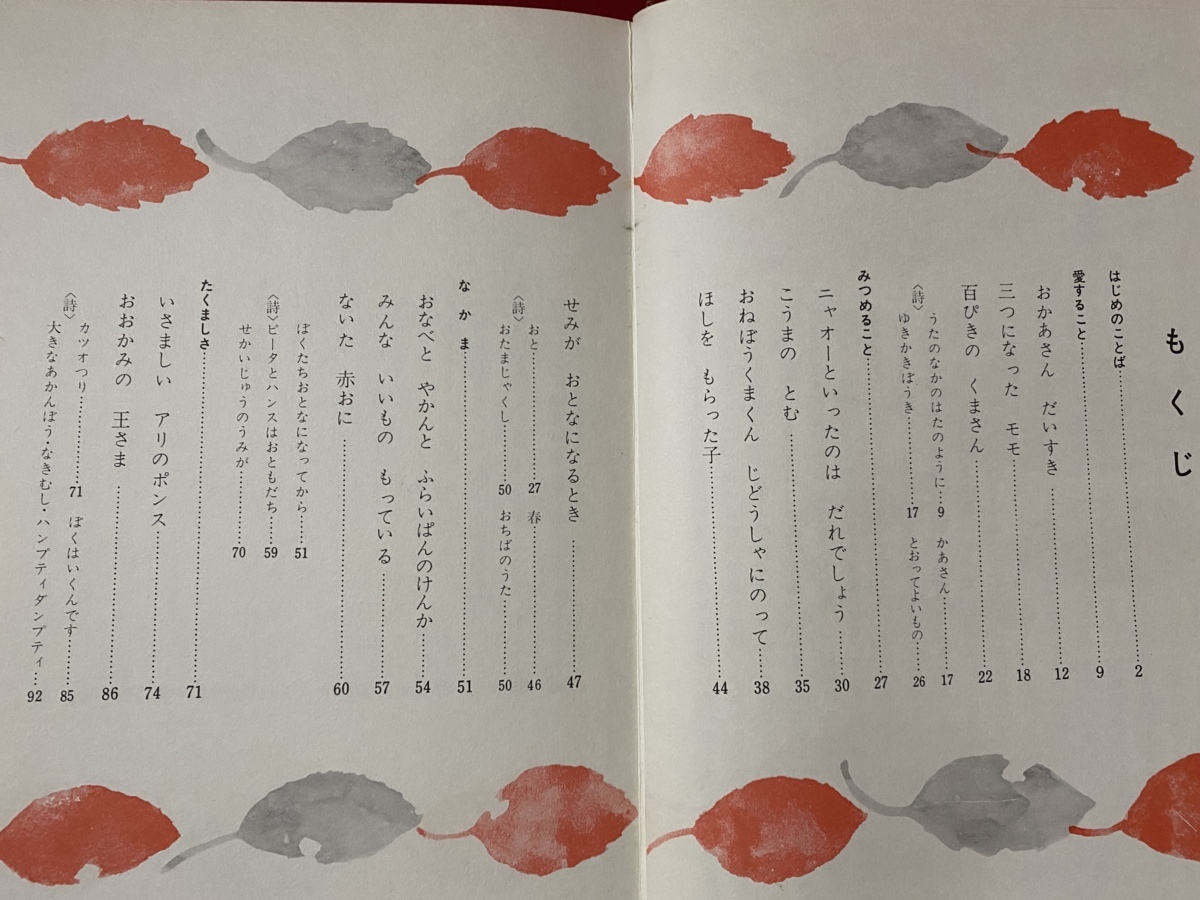 もくじ
はじめのことば……2
愛すること……9
おかあさん だいすき……12
三つになった モモ……18
百ぴきの くまさん……22
〈詩〉
うたのなかのはたのように……9 かあさん……17
ゆきかきぼうき……17 とおってよいもの……26
みつめること……27
ニャオーといったのは だれでしょう……30
こうまの とむ……35
おねぼうくまくん じどうしゃにのって……38
ほしを もらった子……44
せみが おとなになるとき……47
〈詩〉
おと……27 春……46
おたまじゃくし……50 おちばのうた……50
なかま……51
おなべと やかんと ふらいぱんのけんか……54
みんな いいもの もっている……57
ないた 赤おに……60
〈詩〉
ぼくたちおとなになってから……51
ピータとハンスはおともだち……59
せかいじゅうのうみが……70
たくましさ……71
いさましい アリのポンス……74
おおかみの 王さま……86
〈詩〉
カツオつり……71 ぼくはいくんです……85
大きなあかんぼう・なきむし・ハンプティダンプティ……92